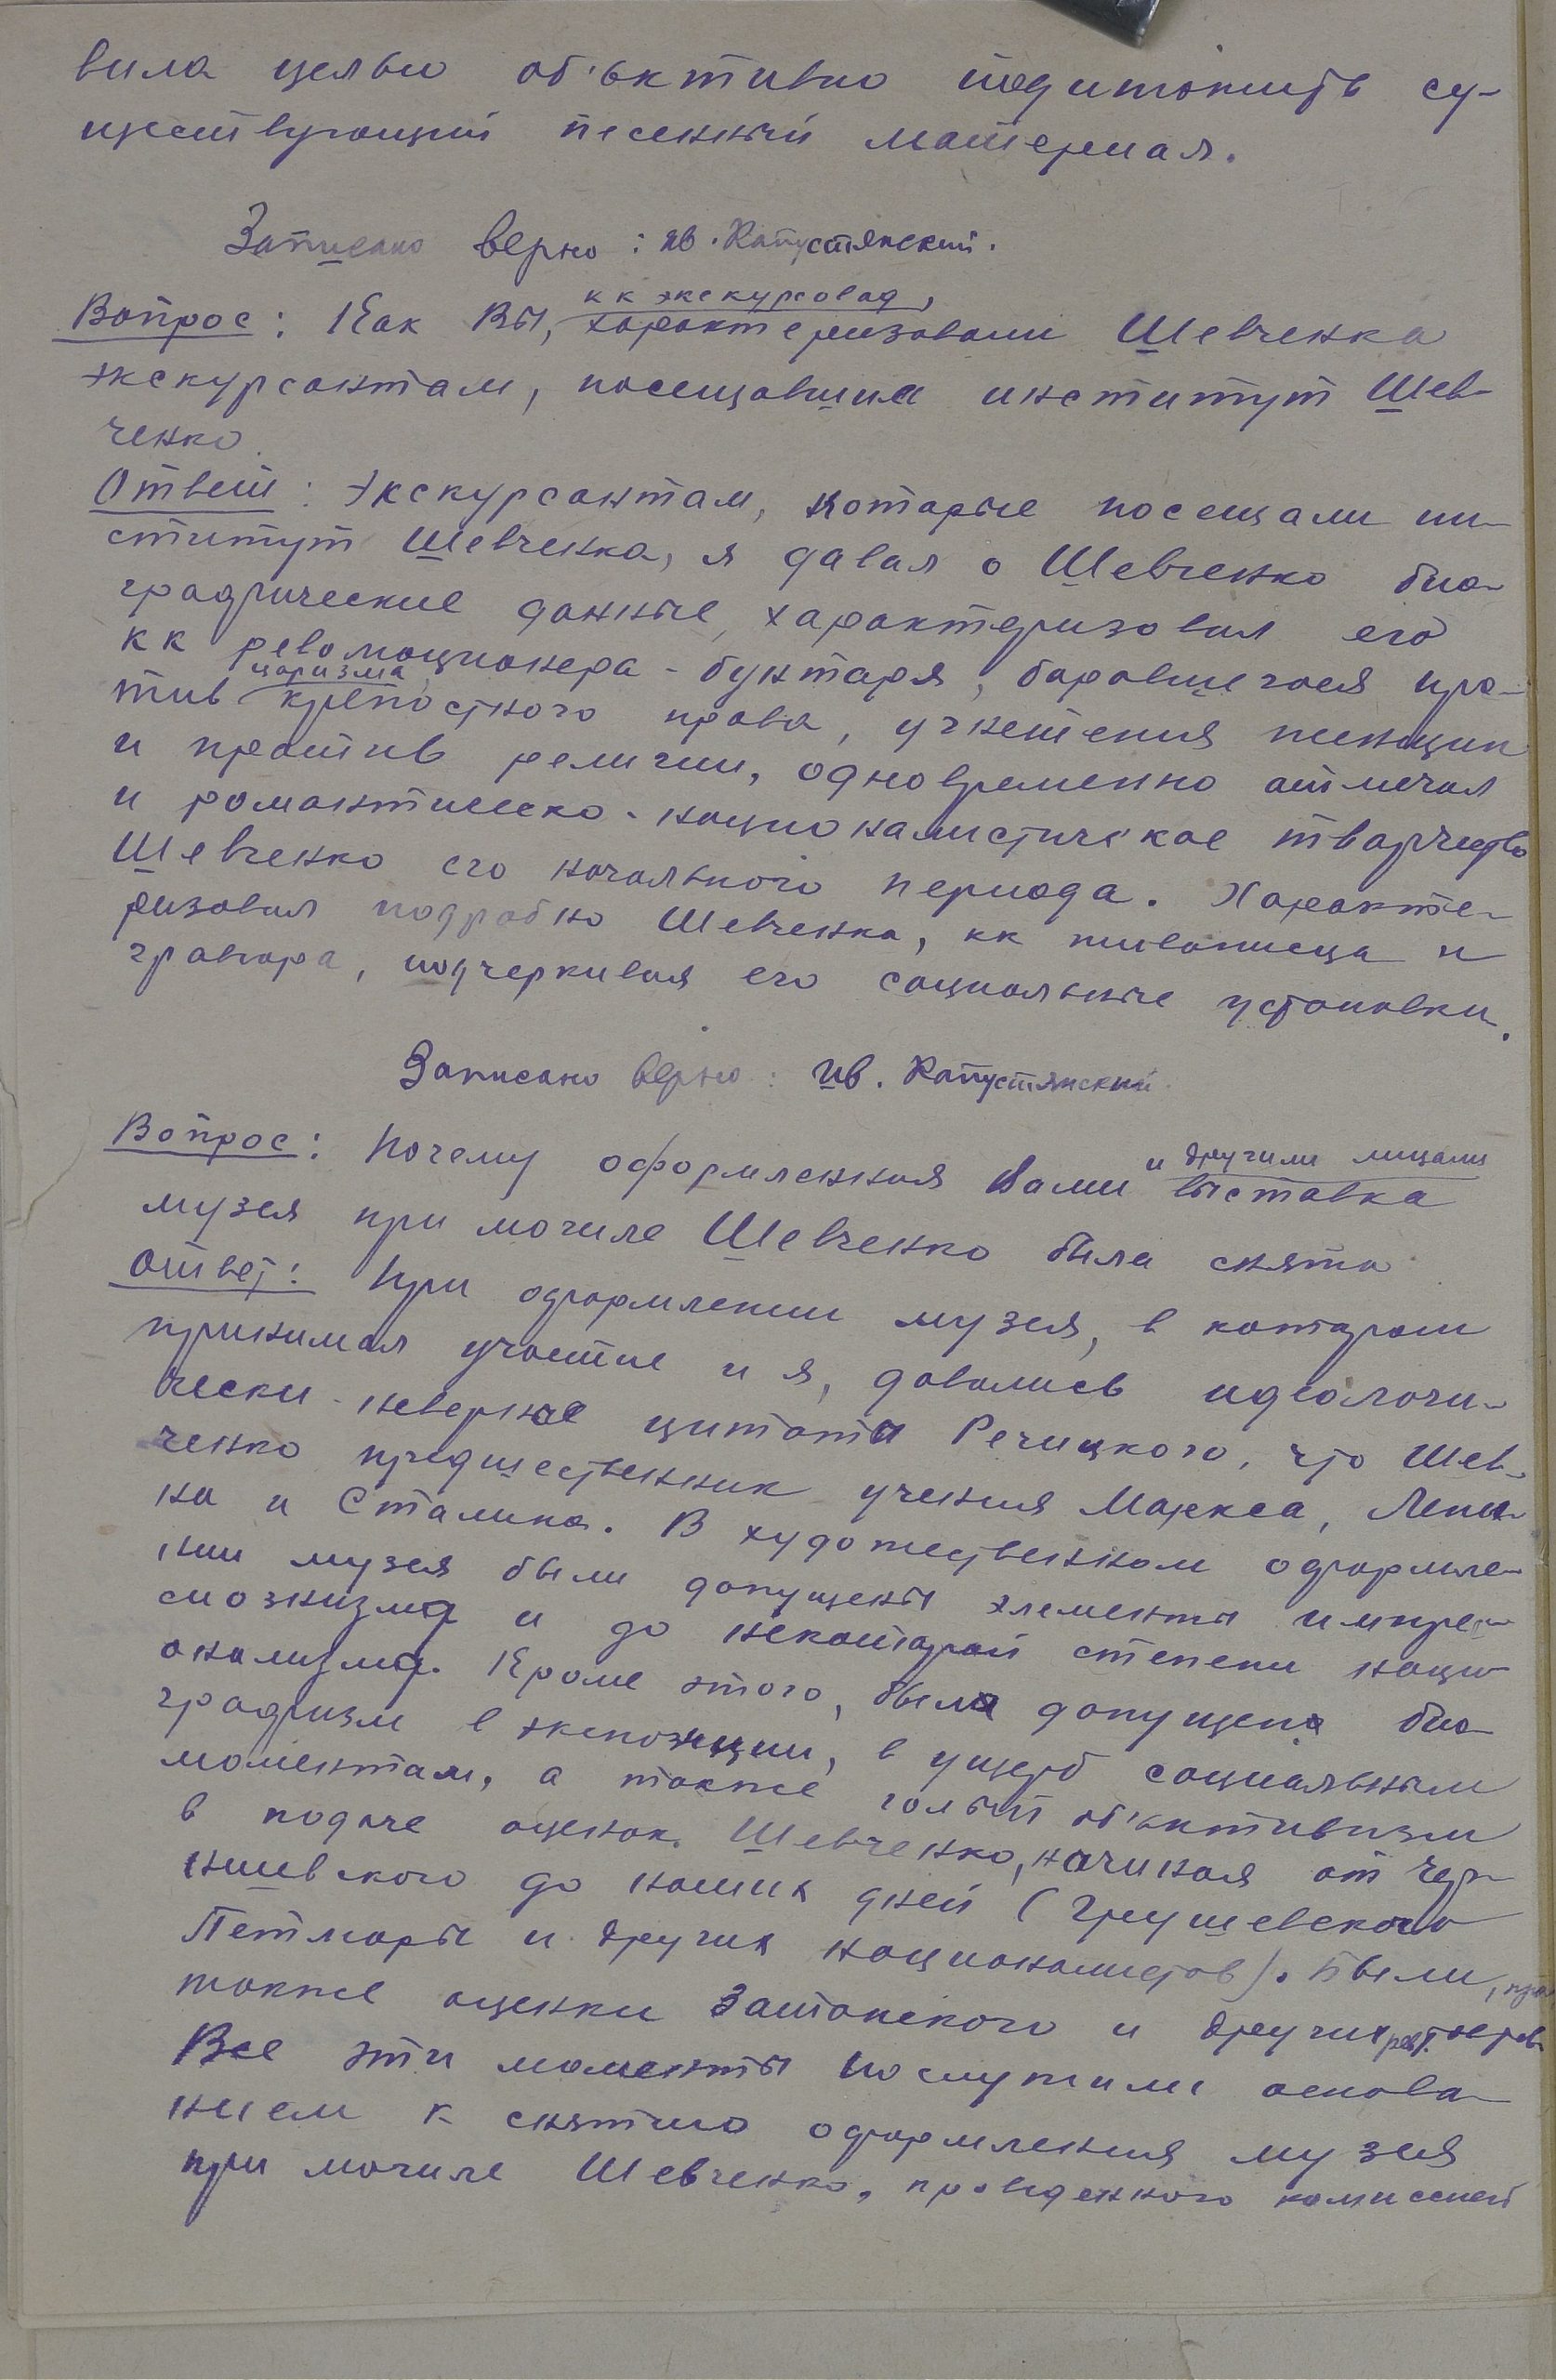 вила целью об'ективно подитожить су-
ществующий песенный материал.
Записано верно: Ив. Капустянский.
кк экскурсовод,
Вопрос: Как Вы, характеризовали Шевченка
экскурсантам, посещавших институт Шев-
ченко.
Ответ: Экскурсантам, которые посещали ин-
ститут Шевченка, я давал о Шевченко био-
графические данные, характеризовал его
кк революционера-бунтаря, боровшегося про-
царизма,
тив крепостного права, угнетения женщин
и против религии, одновременно отмечал
и романтическо-националистическое творчество
Шевченко его начального периода. Характе-
ризовал подробно Шевченка, кк живописца и
гравюра, подчеркивая его социальные установки.
Записано верно: Ив. Капустянский.
и другими лицами
Вопрос: Почему оформленная Вами выставка
музея при могиле Шевченко была снята
Ответ: При оформлении музея, в котором
принимал участие и я, давались идеологи-
чески-неверные цитаты Речицкого, что Шев-
ченко предшественник учения Маркса, Лени-
на и Сталина. В художественном оформле-
нии музея были допущены элементы импрес-
сионизма и до некоторой степени наци-
онализма. Кроме этого, был допущен био-
графизм в экспозиции, в ущерб социальным
моментам, а также голый об'ективизм
в подаче оценок Шевченко, начиная от Чер-
нишевского до наших дней (Грушевского
Петлюры и других националистов). Были,
также оценки Затонского и других
Все эти моменты послужили основа-
нием к снятию оформления музея
при могиле Шевченко, проведенного комиссией